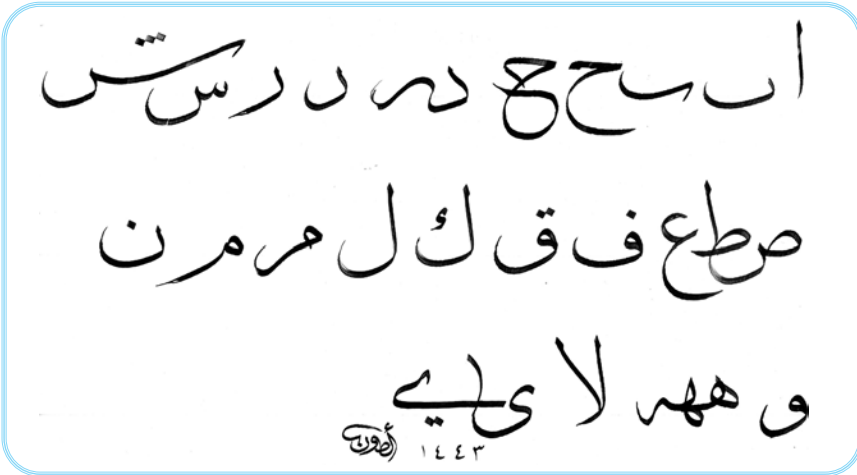 ا ٮ ح ح د ر د ر س ش
ص ط ع ف ق ك ل م م ن
و هه ه لا ى ے
١٤٤٣